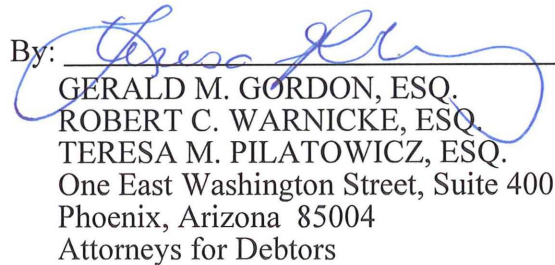 By: Teresa
GERALD M. GORDON, ESQ.
ROBERT C. WARNICKE, ESQ.
TERESA M. PILATOWICZ, ESQ.
One East Washington Street, Suite 400
Phoenix, Arizona 85004
Attorneys for Debtors